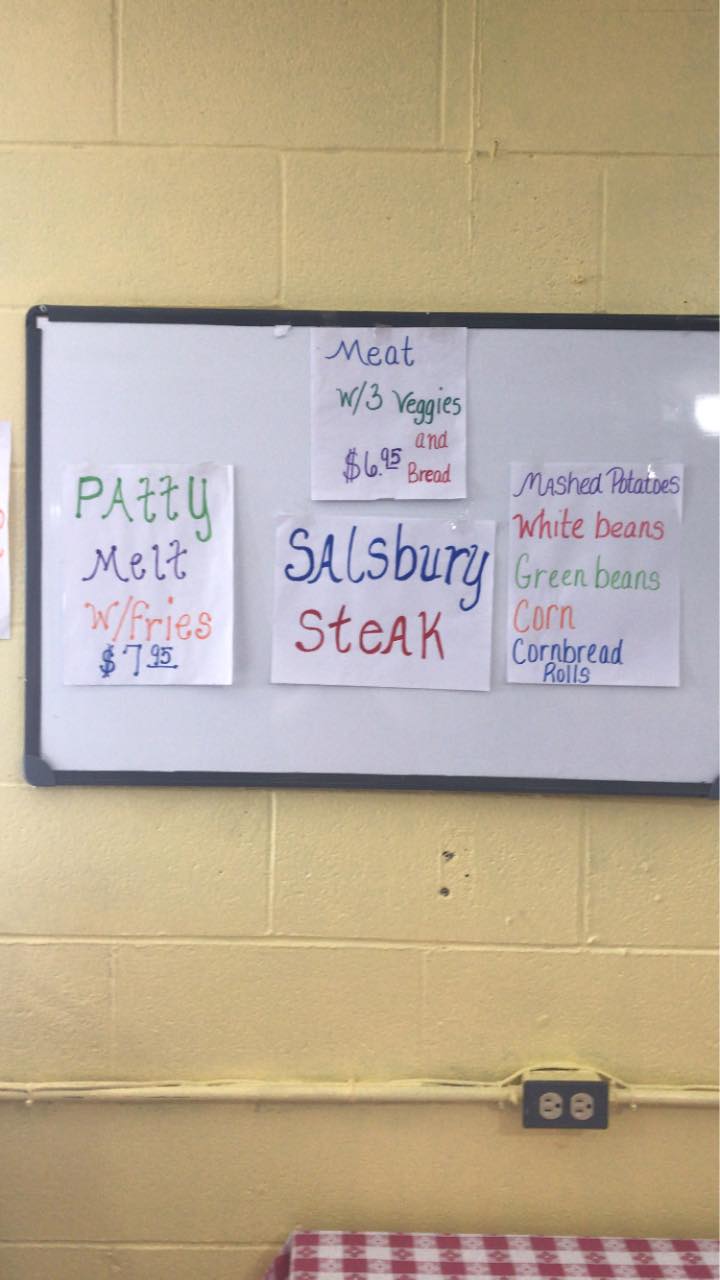 Meat
W/3 Veggies
and
$6.95 Bread
PAtty
Melt
W/fries
$7.95
SAlsbury
SteAK
Mashed Potatoes
White beans
Green beans
Corn
Cornbread
Rolls